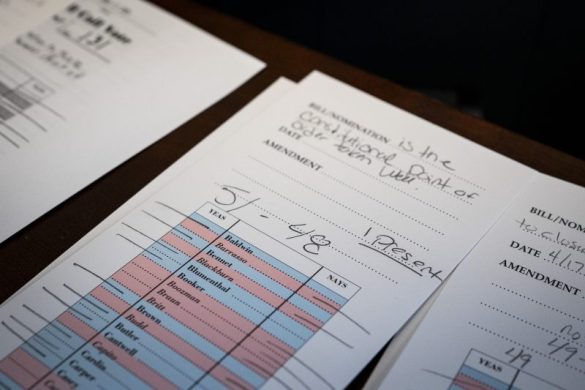 ll Call Vote
131
BILL/NOMINATION is the
Constitutional Point of
order taken Well
DATE
AMENDMENT
51-48
1 Present
YEAS
NAYS
Baldwin
Barrasso
Bennet
Blackburn
Blumenthal
Booker
Boozman
Braun
Britt
Brown
Budd
Butler
Cantwell
Capito
Cardin
Carper
Casey
BILL/NO
to clos
DATE 4/1
AMENDMENT
no
49
49
YEAS